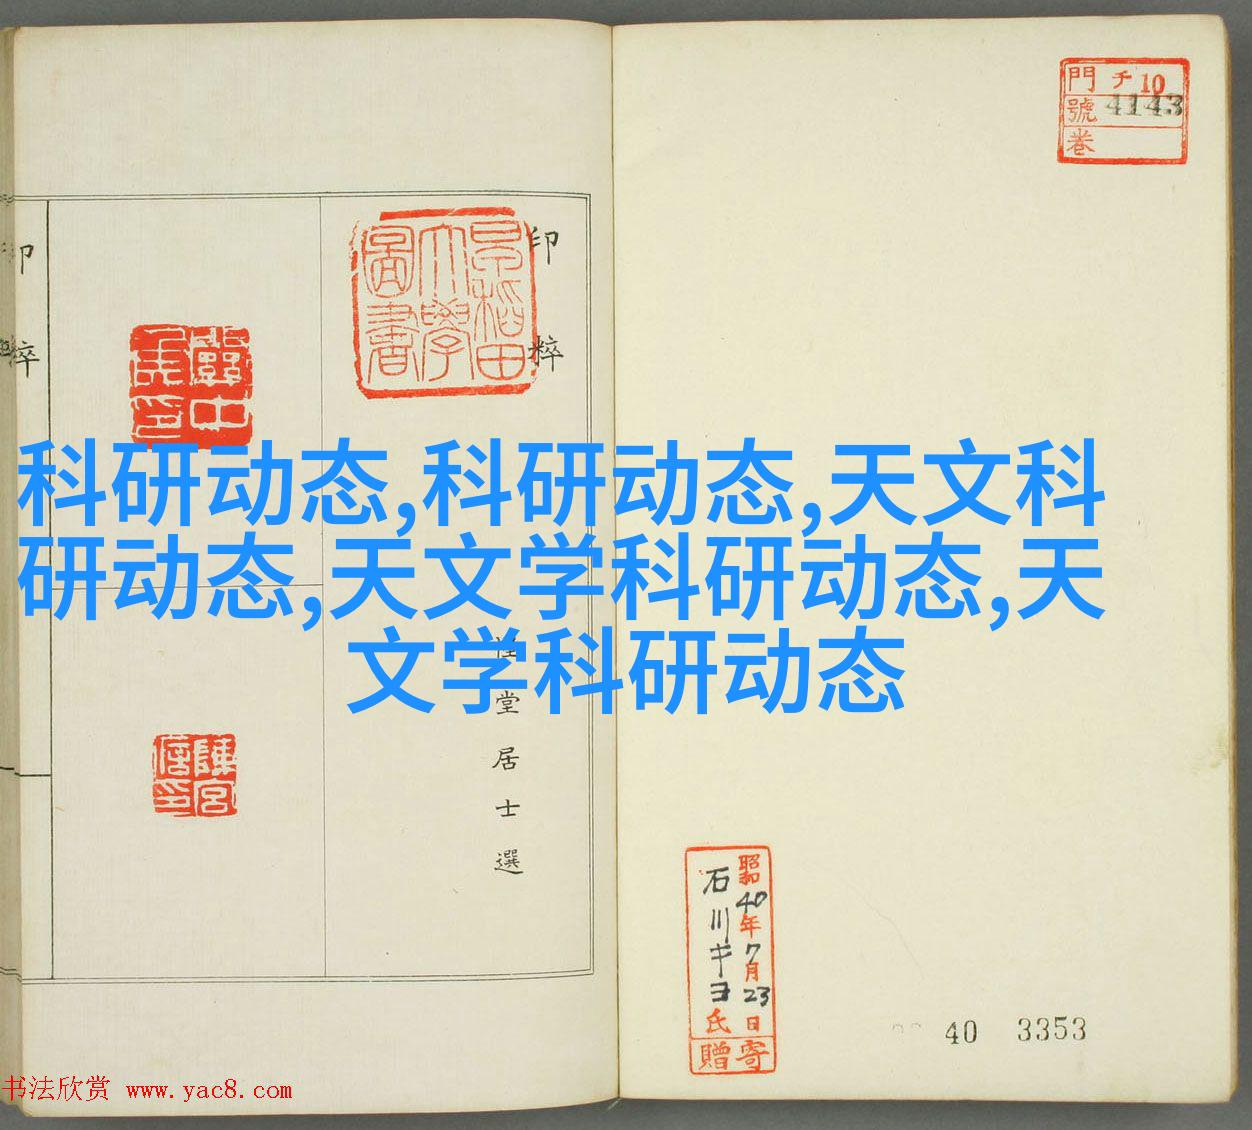 門 チ 10
號 4143
卷
印粹
印粹
早稻田
大學
圖書
科研动态,科研动态,天文科
研动态,天文学科研动态,天
文学科研动态
堂居士選
陳宮
信印
昭和40年7月23日
石川キヨ氏
寄贈
40 3353
书法欣赏 www.yac8.com